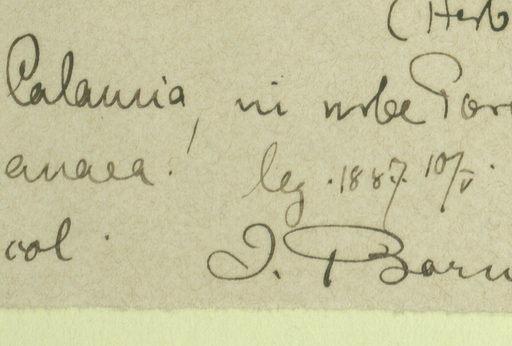 (Herb
Calannia, in urbe Tor
anaea! leg. 1887. 10/V.
col. J. Born